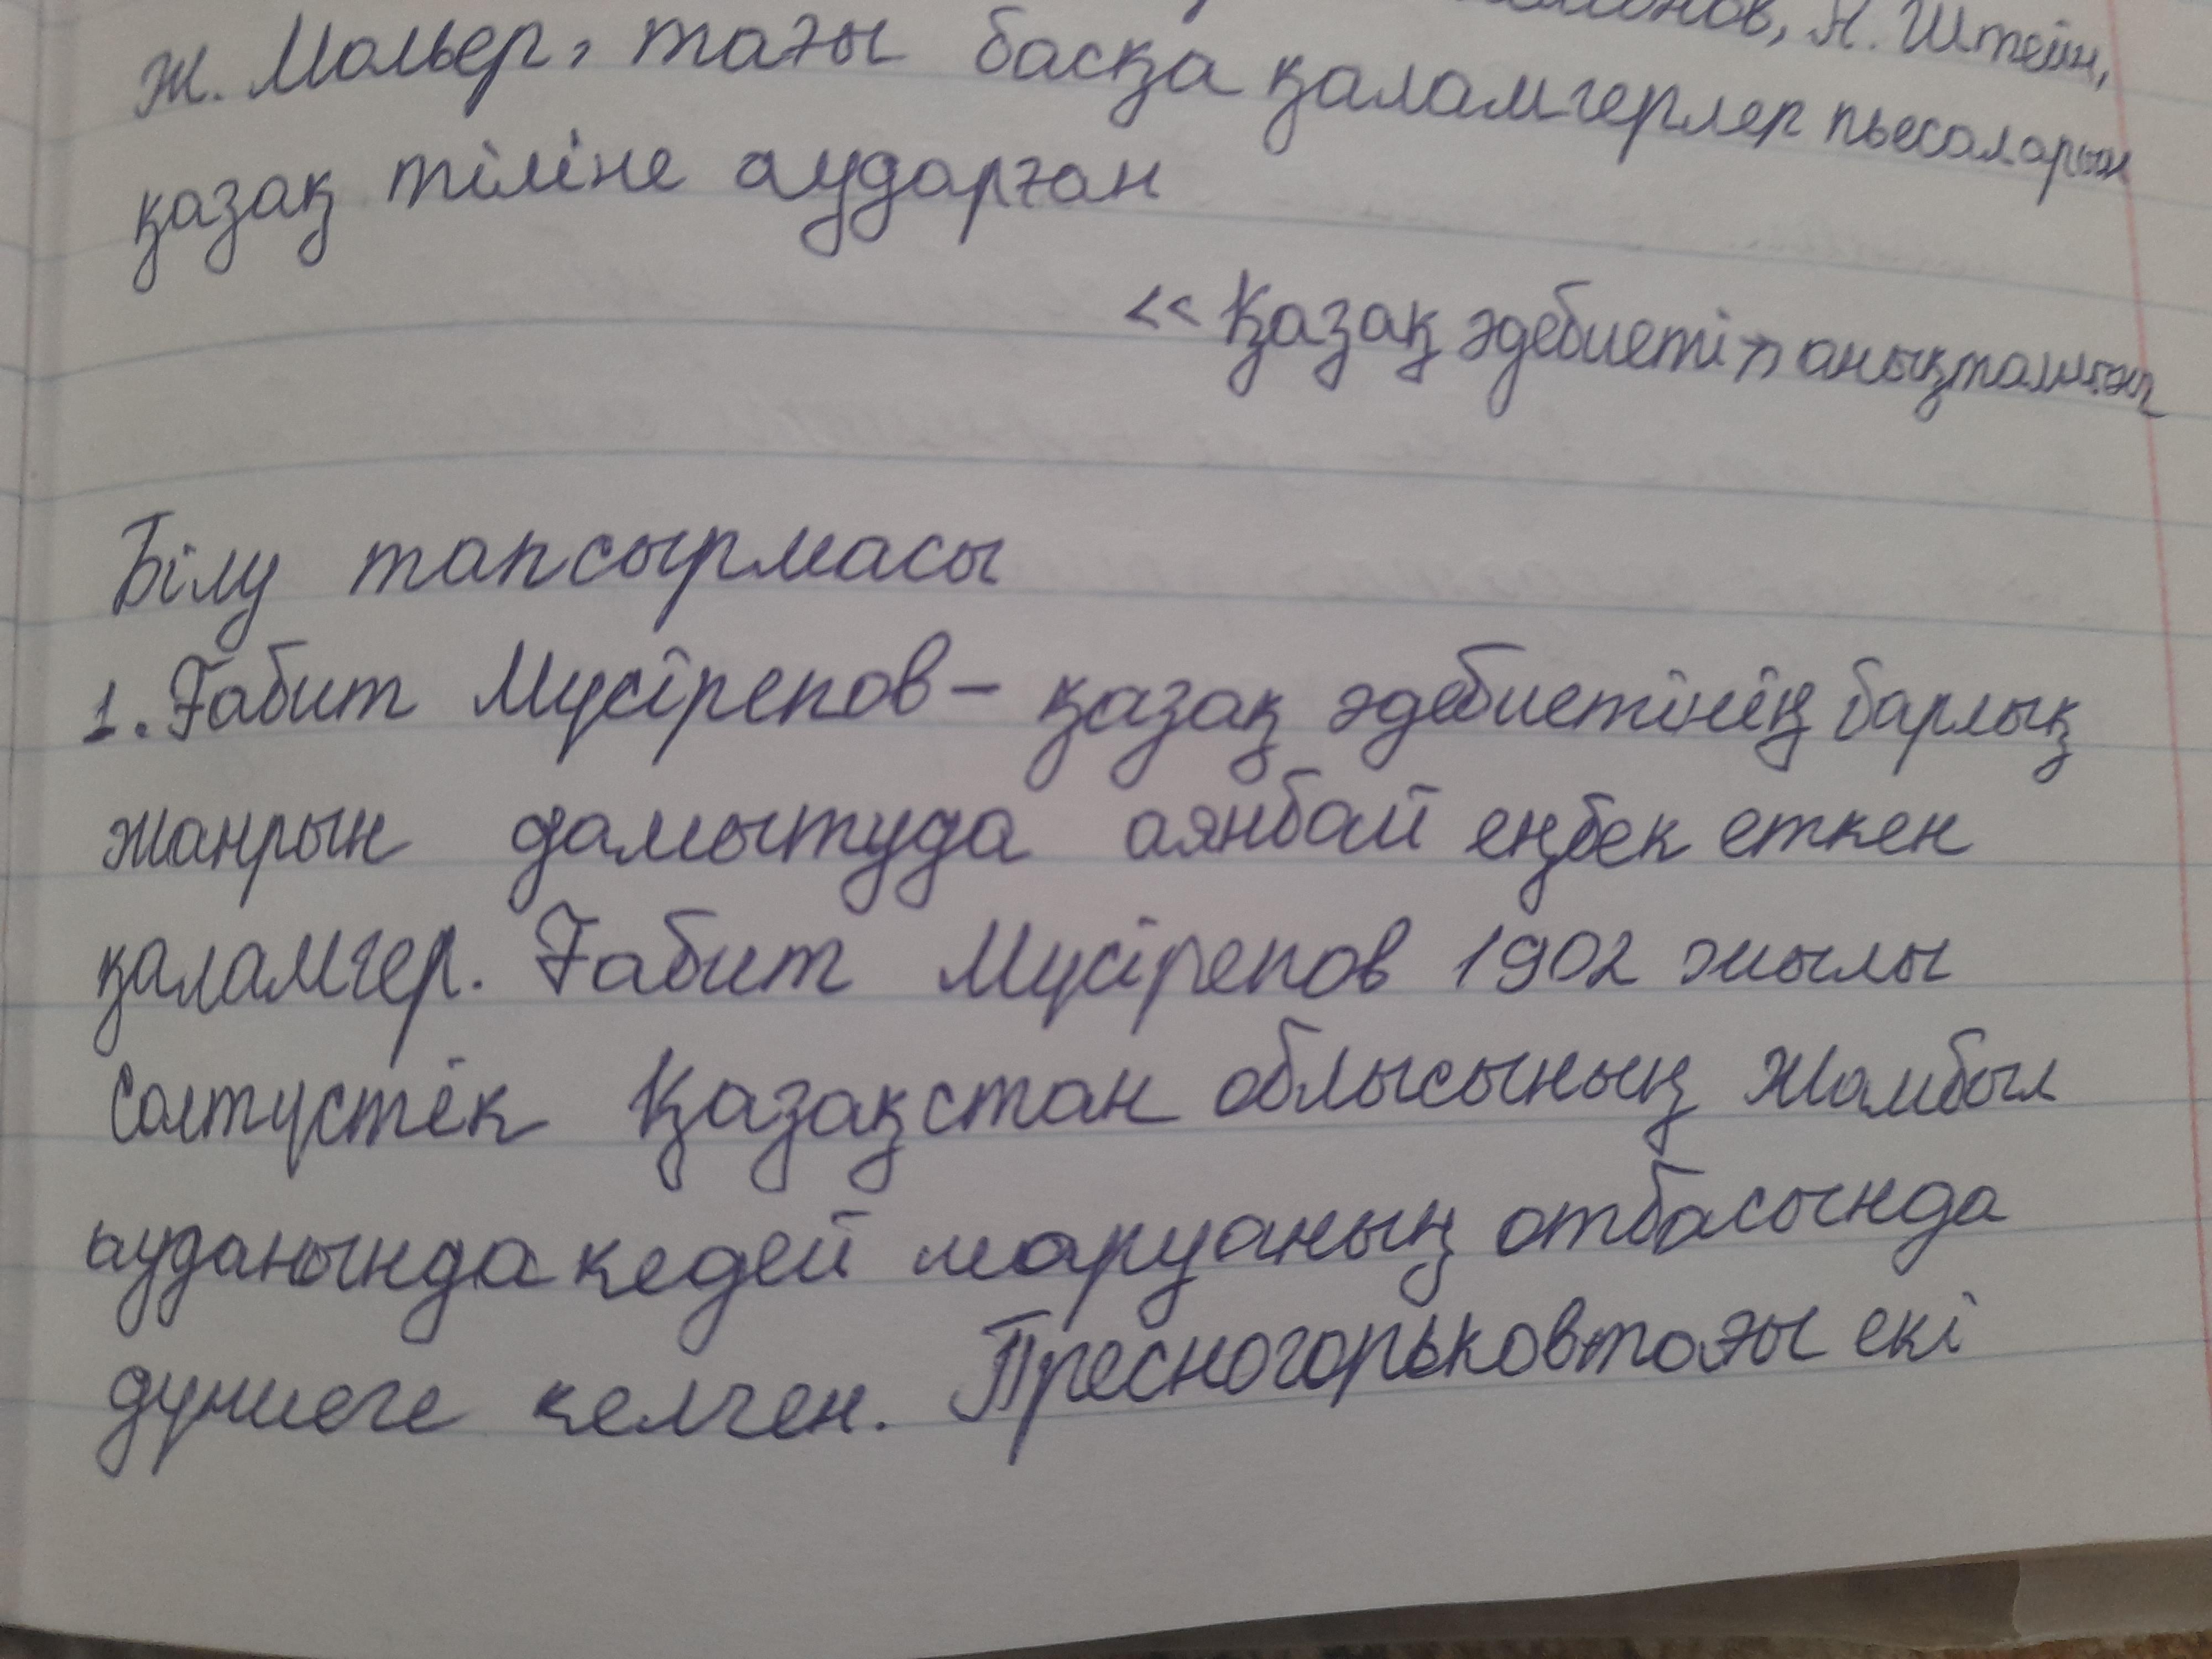 А. Штейн,
Ж. Мольер, тағы басқа қаламгерлер пьесаларын
қазақ тіліне аударған
<<Қазақ әдебиеті>>
Білу тапсырмасы
1. Ғабит Мусірепов – қазақ әдебиетінің барлық
жанрын дамытуда аянбай еңбек еткен
қаламгер. Ғабит Мусірепов 1902 жылы
Солтустік Қазақстан облысының Жамбыл
ауданында кедей шаруаның отбасында
дуниеге келген. Пресногорьковтағы екі